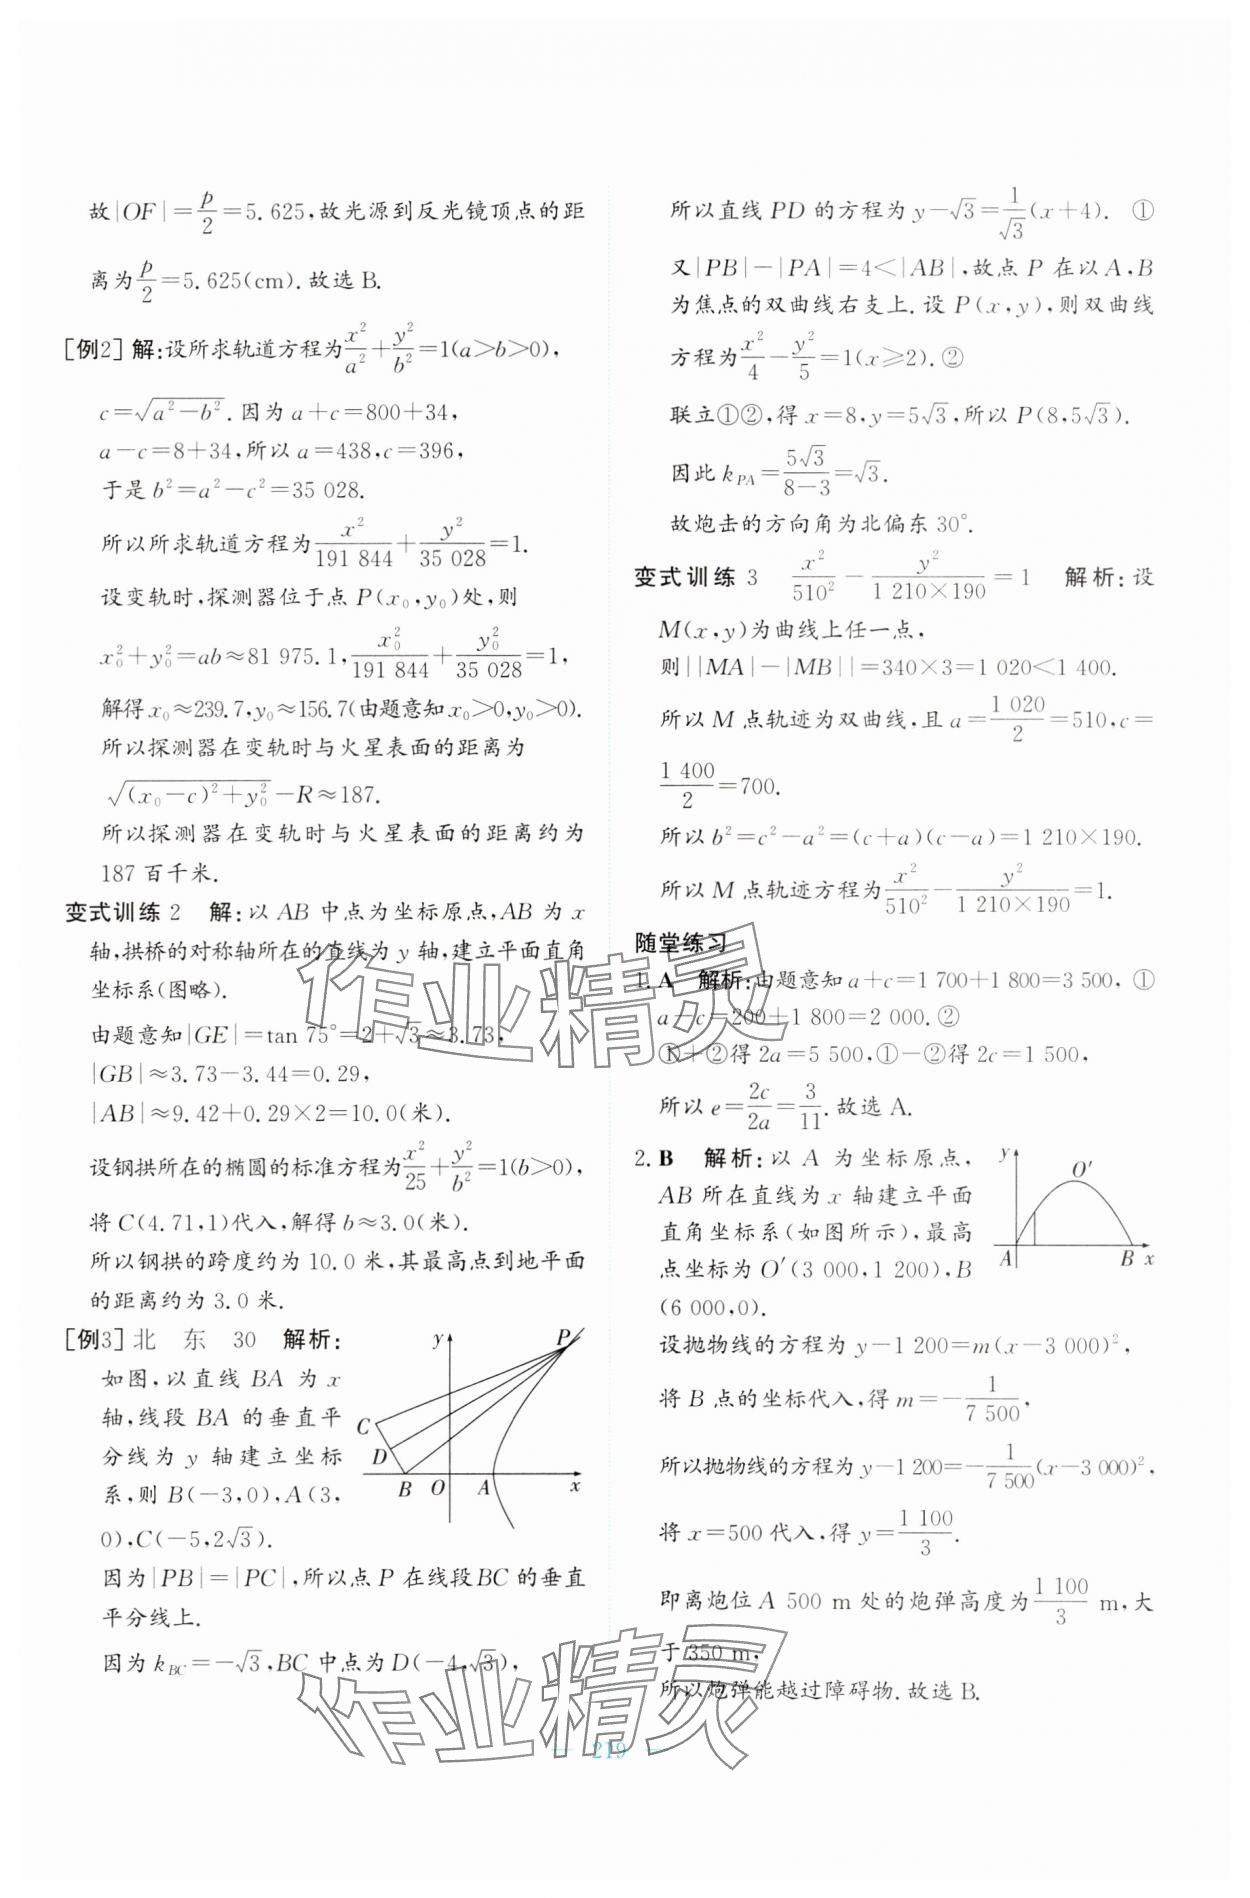 故|OF|=p/2=5.625,故光源到反光镜顶点的距
离为p/2=5.625(cm).故选 B.
[例2] 解:设所求轨道方程为x²/a²+y²/b²=1(a>b>0),
c=√(a²-b²).因为 a+c=800+34,
a-c=8+34,所以 a=438,c=396,
于是 b²=a²-c²=35 028.
所以所求轨道方程为x²/191 844+y²/35 028=1.
设变轨时,探测器位于点 P(x₀,y₀)处,则
x₀²+y₀²=ab≈81 975.1,x₀²/191 844+y₀²/35 028=1,
解得 x₀≈239.7,y₀≈156.7(由题意知 x₀>0,y₀>0).
所以探测器在变轨时与火星表面的距离为
√((x₀-c)²+y₀²)-R≈187.
所以探测器在变轨时与火星表面的距离约为
187 百千米.
变式训练 2 解:以 AB 中点为坐标原点,AB 为 x
轴,拱桥的对称轴所在的直线为 y 轴,建立平面直角
坐标系(图略).
由题意知|GE|=tan 75°=2+√3≈3.73,
|GB|≈3.73-3.44=0.29,
|AB|≈9.42+0.29×2=10.0(米).
设钢拱所在的椭圆的标准方程为x²/25+y²/b²=1(b>0),
将 C(4.71,1)代入,解得 b≈3.0(米).
所以钢拱的跨度约为 10.0 米,其最高点到地平面
的距离约为 3.0 米.
[例3] 北 东 30 解析:
如图,以直线 BA 为 x
轴,线段 BA 的垂直平
分线为 y 轴建立坐标
系,则 B(-3,0),A(3,
0),C(-5,2√3).
y
P
C
D
B
O
A
x
因为|PB|=|PC|,所以点 P 在线段 BC 的垂直
平分线上.
因为 k_BC=-√3,BC 中点为 D(-4,√3),
所以直线 PD 的方程为 y-√3=1/√3(x+4). ①
又|PB|-|PA|=4<|AB|,故点 P 在以 A,B
为焦点的双曲线右支上.设 P(x,y),则双曲线
方程为x²/4-y²/5=1(x≥2).②
联立①②,得 x=8,y=5√3,所以 P(8,5√3).
因此 k_PA=5√3/(8-3)=√3.
故炮击的方向角为北偏东 30°.
变式训练 3 x²/510²-y²/(1 210×190)=1 解析:设
M(x,y)为曲线上任一点,
则||MA|-|MB||=340×3=1 020<1 400.
所以 M 点轨迹为双曲线,且 a=1 020/2=510,c=
1 400/2=700.
所以 b²=c²-a²=(c+a)(c-a)=1 210×190.
所以 M 点轨迹方程为x²/510²-y²/(1 210×190)=1.
随堂练习
1. A 解析:由题意知 a+c=1 700+1 800=3 500, ①
a-c=200+1 800=2 000.②
①+②得 2a=5 500,①-②得 2c=1 500,
所以 e=2c/2a=3/11.故选 A.
2. B 解析:以 A 为坐标原点,
AB 所在直线为 x 轴建立平面
直角坐标系(如图所示),最高
点坐标为 O′(3 000,1 200),B
(6 000,0).
y
O′
A
B
x
设抛物线的方程为 y-1 200=m(x-3 000)²,
将 B 点的坐标代入,得 m=-1/7 500,
所以抛物线的方程为 y-1 200=-1/7 500(x-3 000)²,
将 x=500 代入,得 y=1 100/3.
即离炮位 A 500 m 处的炮弹高度为1 100/3 m,大
于 350 m,
所以炮弹能越过障碍物.故选 B.
作业精灵
作业精灵
219